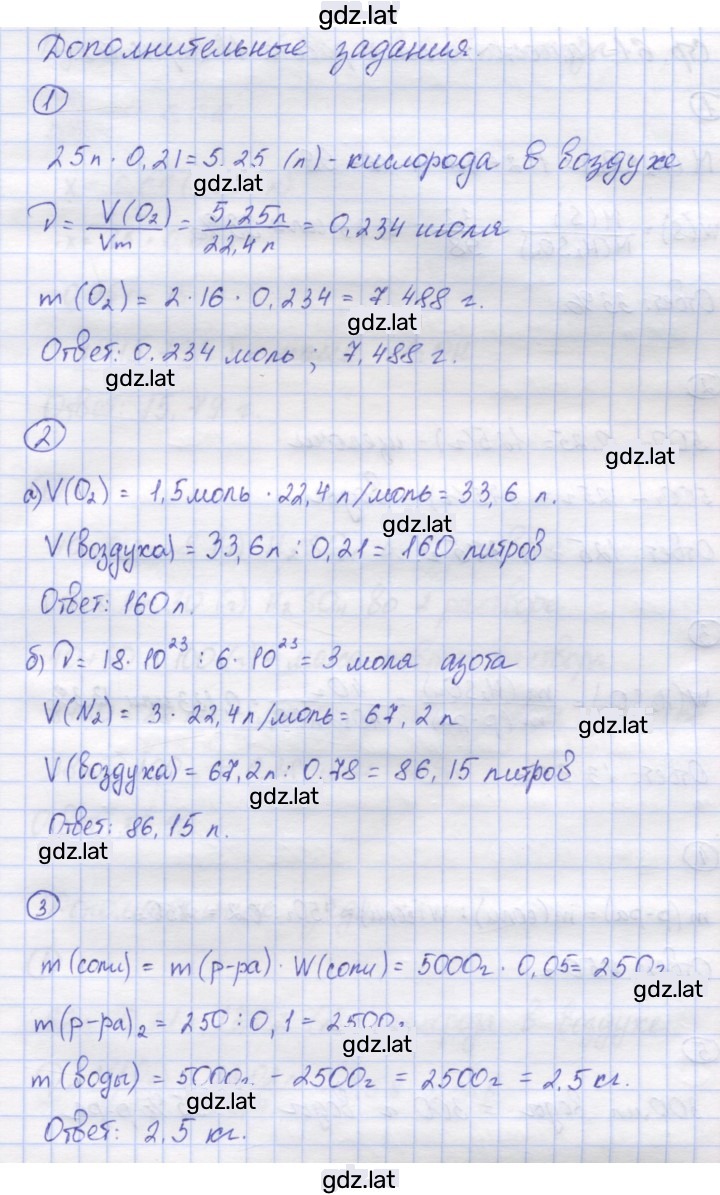 gdz.lat
Дополнительные задания
1
25л · 0,21 = 5.25 (л) - кислорода в воздухе
gdz.lat
ν = V(O₂)/Vm = 5,25л/22,4л = 0,234 моля
m (O₂) = 2 · 16 · 0,234 = 7.488 г.
gdz.lat
Ответ: 0.234 моль ; 7,488 г.
gdz.lat
2
gdz.lat
а) V(O₂) = 1,5моль · 22,4 л/моль = 33,6 л.
gdz.lat
V(воздуха) = 33,6л : 0,21 = 160 литров
Ответ: 160л.
б) ν = 18 · 10²³ : 6 · 10²³ = 3 моля азота
V(N₂) = 3 · 22,4л/моль = 67,2л
gdz.lat
V(воздуха) = 67,2л : 0.78 = 86,15 литров
gdz.lat
Ответ: 86,15 л.
gdz.lat
3
m (соли) = m (р-ра) · W(соли) = 5000г · 0,05 = 250г
gdz.lat
m (р-ра)₂ = 250 : 0,1 = 2500г
gdz.lat
m (воды) = 5000г. - 2500г = 2500г = 2,5 кг.
gdz.lat
Ответ: 2,5 кг.
gdz.lat